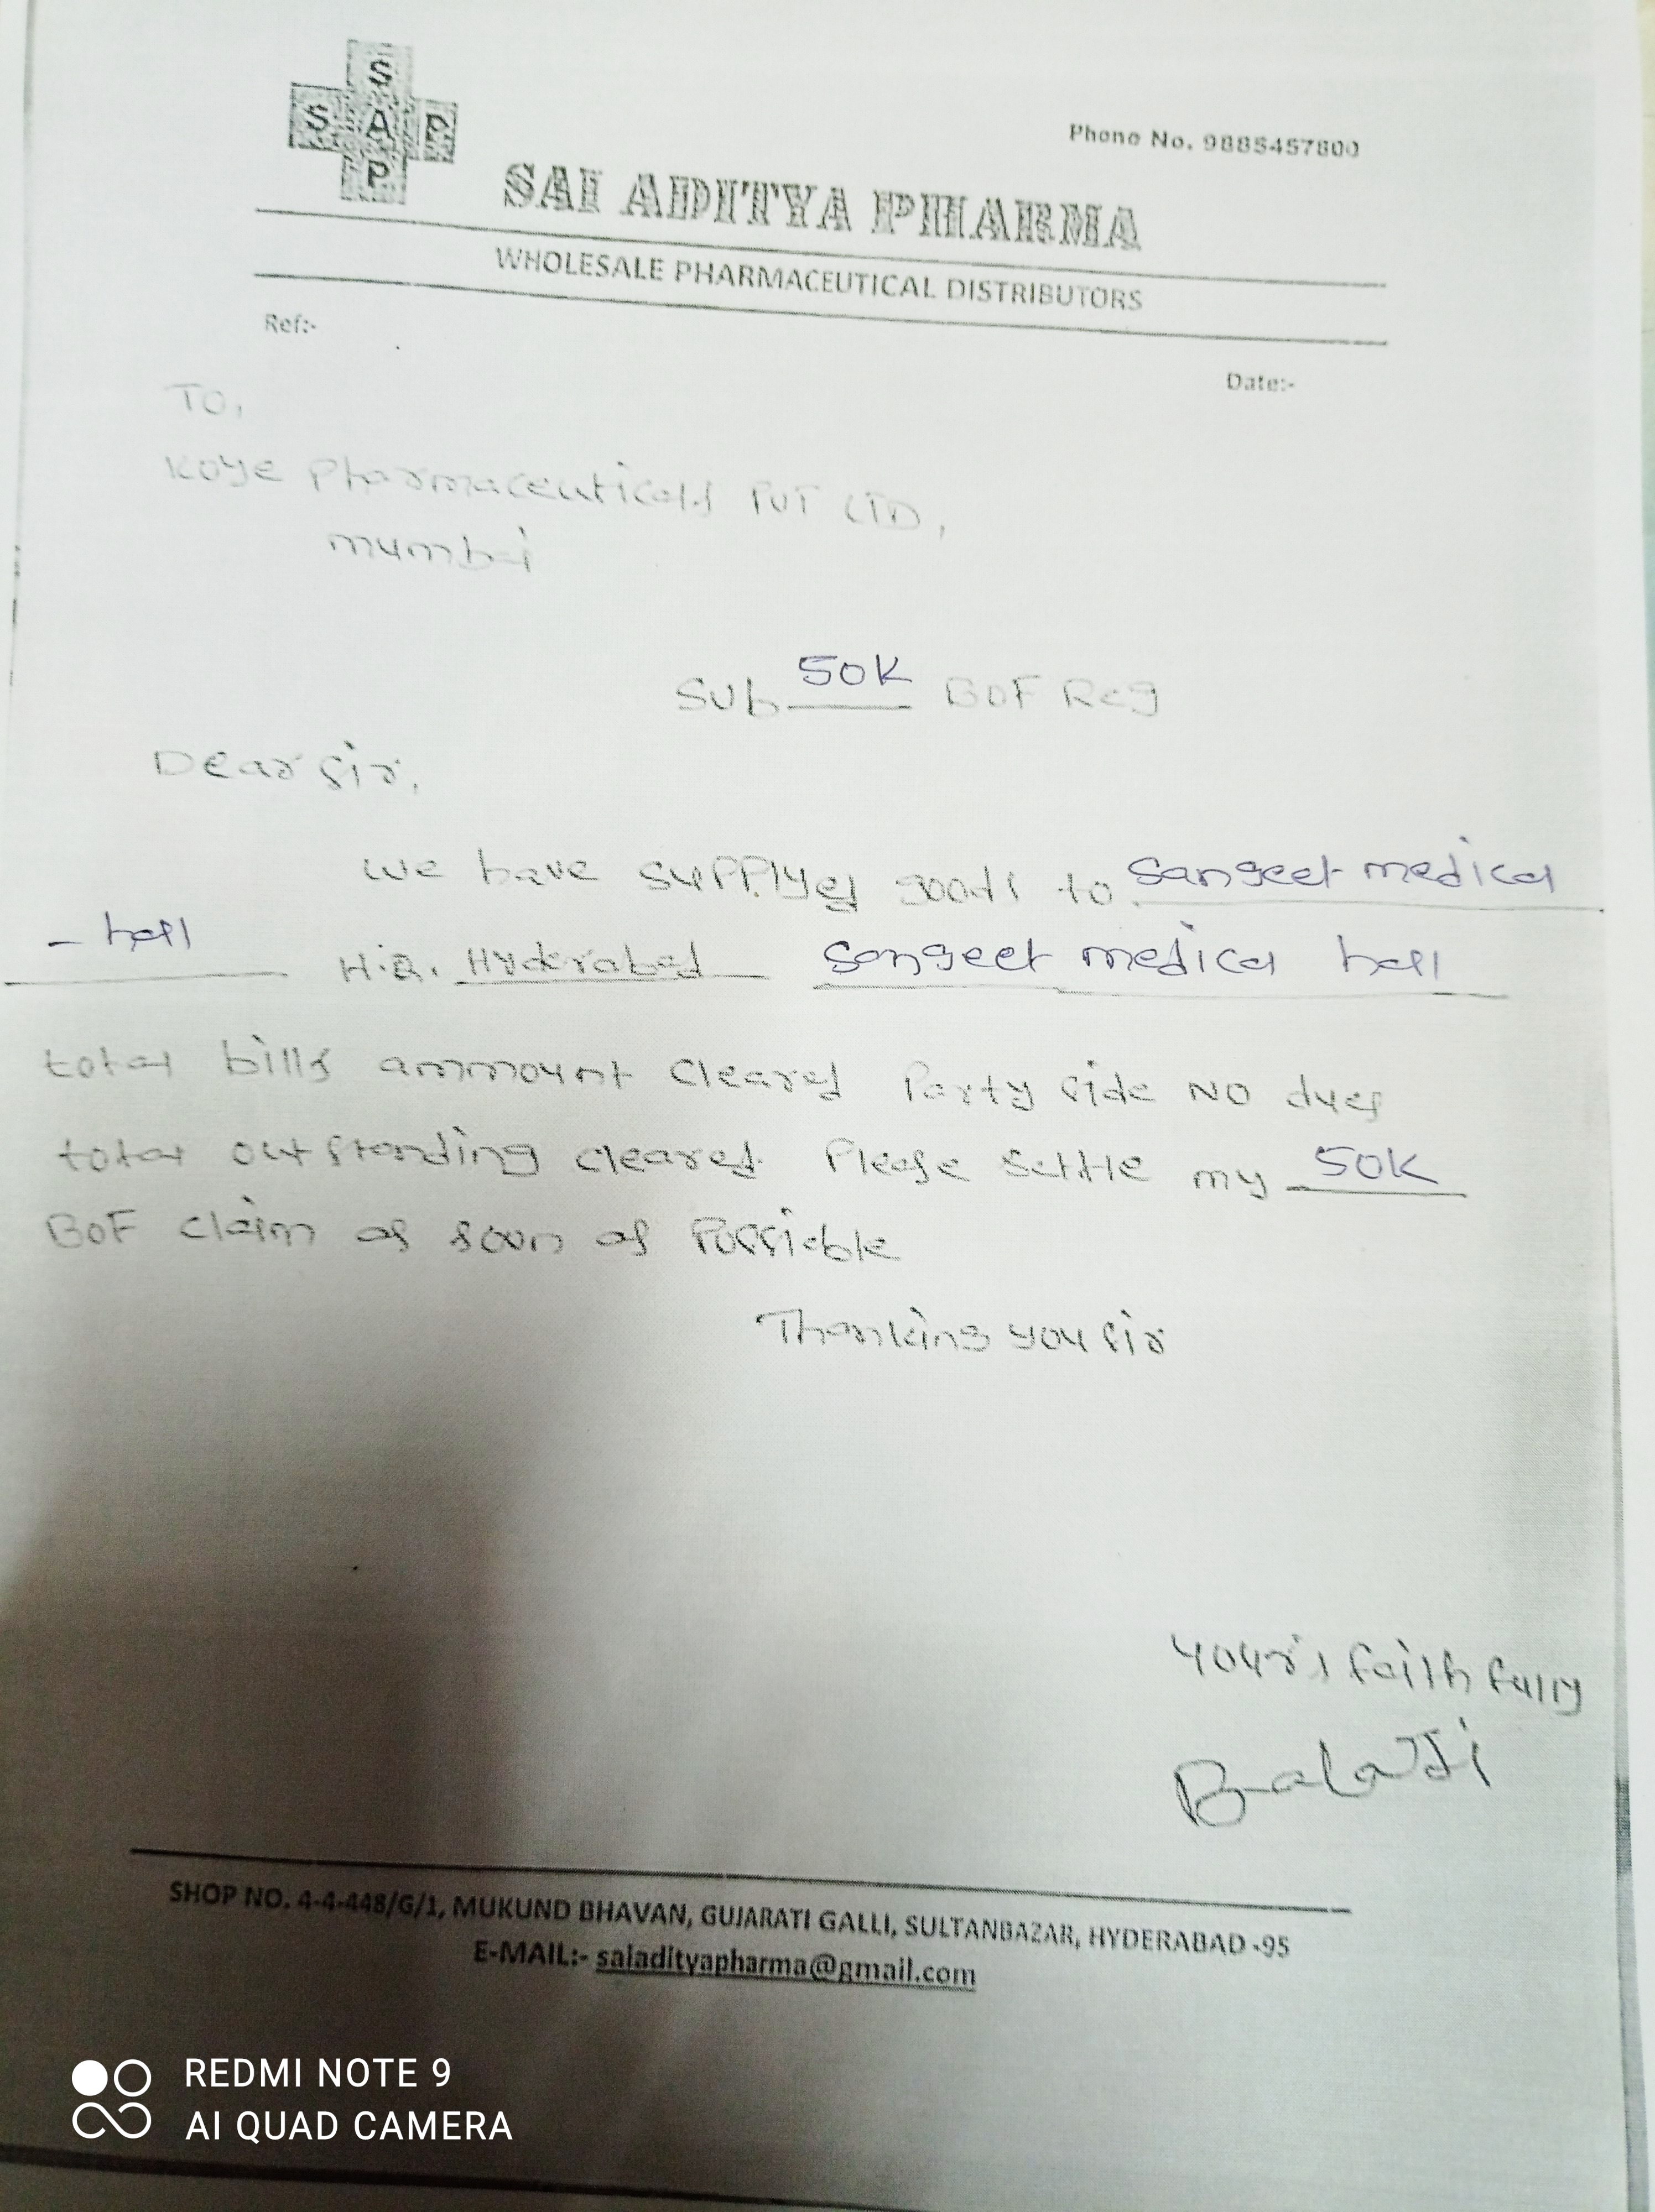 S
S A P
P
Phone No. 9885457800
SAI ADITYA PHARMA
WHOLESALE PHARMACEUTICAL DISTRIBUTORS
Ref:-
Date:-
TO,
Koye Pharmaceuticals PVT LTD,
mumbai
Sub 50K BOF Reg
Dear sir,
we have supplyed goods to Sangeet medical
- hall H.Q. Hyderabad Sangeet medical hall
total bills ammount cleared Party side NO dues
total outstanding cleared. Please settle my 50K
BOF claim as soon as Possieble
Thanking you sir
Your's faith fully
Balaji
SHOP NO. 4-4-448/G/1, MUKUND BHAVAN, GUJARATI GALLI, SULTANBAZAR, HYDERABAD -95
E-MAIL:- saiadityapharma@gmail.com
REDMI NOTE 9
AI QUAD CAMERA